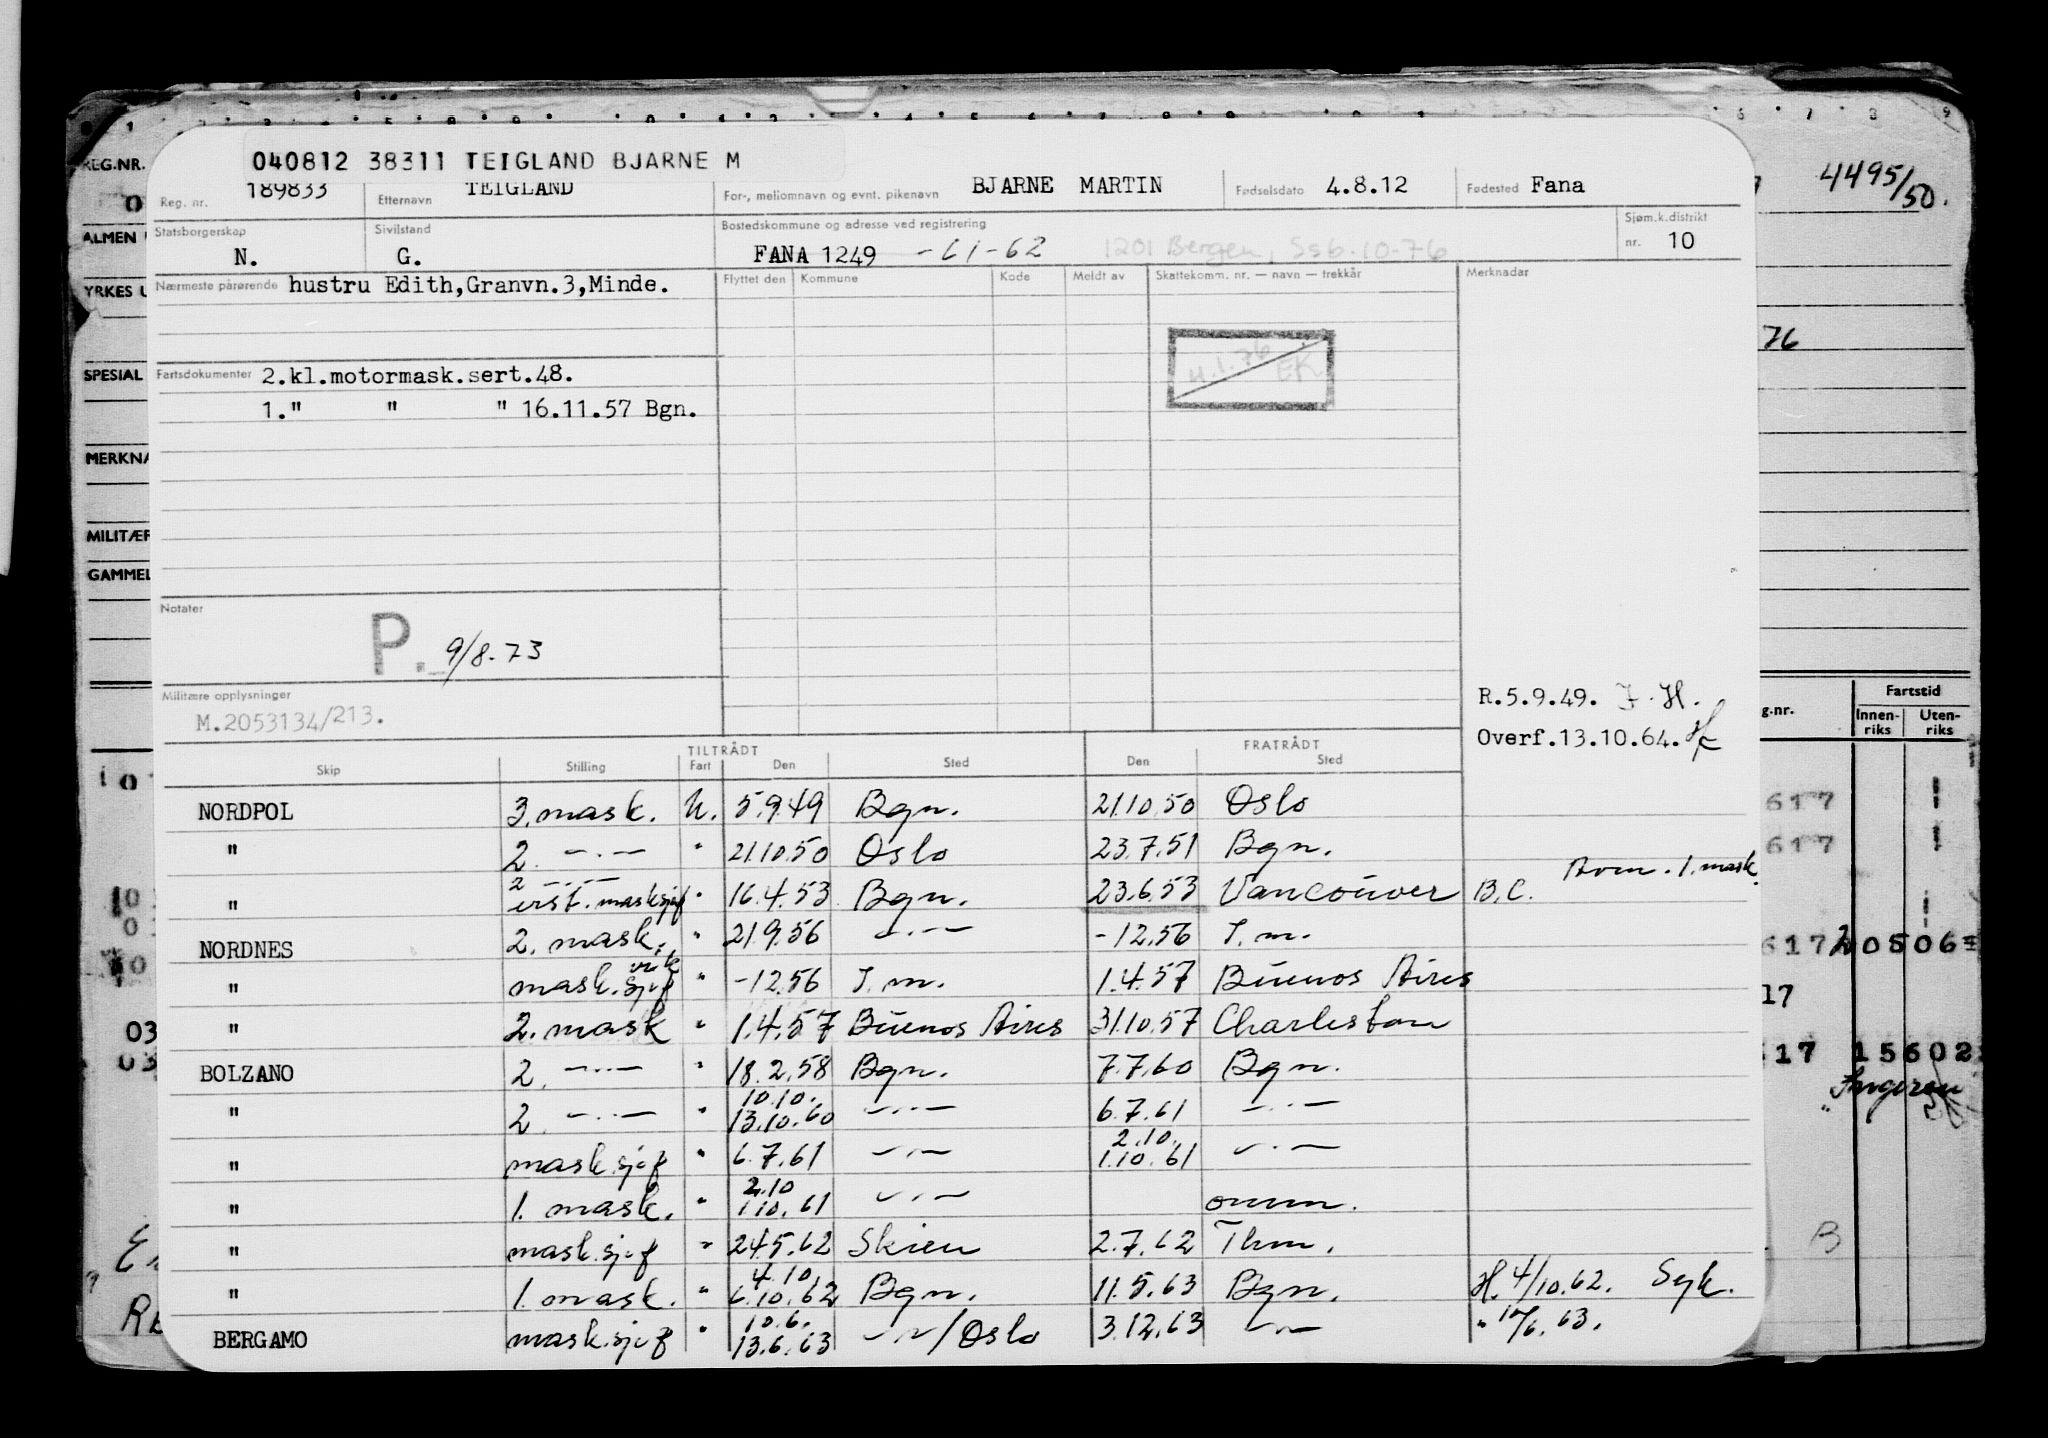 4495/50.
REG.NR.
ALMEN
YRKES U
SPESIAL
MERKNA
MILITÆR
GAMMEL
76
040812 38311 TEIGLAND BJARNE M
Reg. nr. 189833 Etternavn TEIGLAND For-, mellomnavn og evnt. pikenavn BJARNE MARTIN Fødselsdato 4.8.12 Fødested Fana
Statsborgerskap N. Sivilstand G. Bostedskommune og adresse ved registrering FANA 1249 -61-62 1201 Bergen, Ssb.10-76 Sjøm.k.distrikt nr. 10
Nærmeste pårørende hustru Edith,Granvn.3,Minde.
Flyttet den Kommune Kode Meldt av Skattekomm. nr. — navn — trekkår Merknader
H.1.76 EK
Fartsdokumenter 2.kl.motormask.sert.48.
1." " " 16.11.57 Bgn.
Notater
P. 9/8.73
Militære opplysninger
M.2053134/213.
R.5.9.49. J.H.
Overf.13.10.64.
g.nr. Fartstid
Innen-riks Uten-riks
TILTRÅDT FRATRÅDT
Skip Stilling Fart Den Sted Den Sted
NORDPOL 3.mask. U. 5.9.49 Bgn. 21.10.50 Oslo
" 2. —"— " 21.10.50 Oslo 23.7.51 Bgn.
" 2 —"— " 16.4.53 Bgn. 23.6.53 Vancouver B.C. 1.mask.
NORDNES 2. mask. " 21.9.56 —"— -12.56 I.m.
" mask.sjef " -12.56 I.m. 1.4.57 Buenos Aires
" 2. mask " 1.4.57 Buenos Aires 31.10.57 Charleston
BOLZANO 2. —"— " 18.2.58 Bgn. 7.7.60 Bgn.
" 2. —"— " 10.10. 13.10.60 —"— 6.7.61 —"—
" mask.sjef " 6.7.61 —"— 2.10. 1.10.61 —"—
" 1. mask. " 2.10 1.10.61 —"— omm.
" mask.sjef " 24.5.62 Skien 2.7.62 Thm.
" 1. mask. " 4.10 6.10.62 Bgn. 11.5.63 Bgn. H. 4/10.62. Syk.
BERGAMO mask.sjef " 10.6. 13.6.63 —"—/Oslo 3.12.63 —"—
617
617
17
B